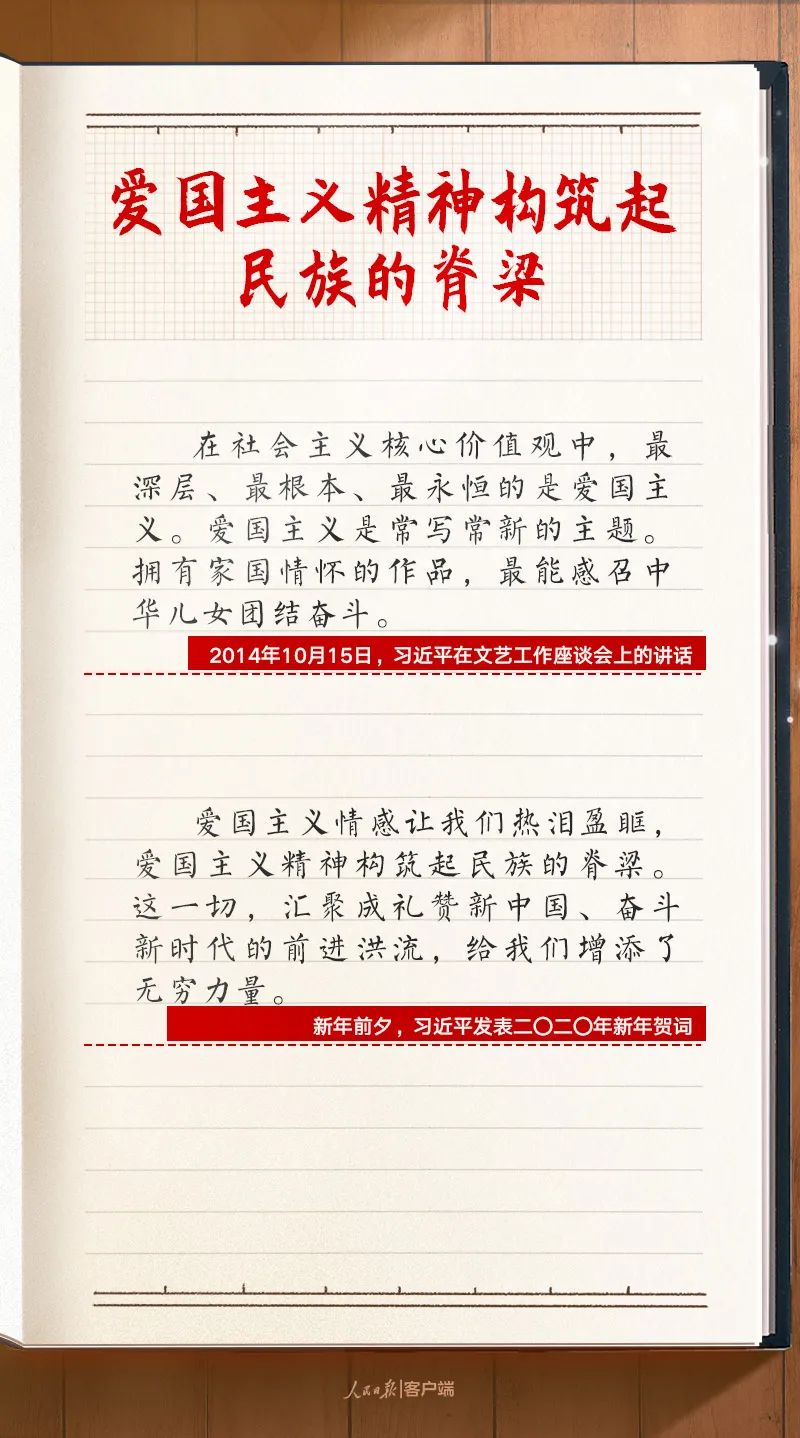 爱国主义精神构筑起
民族的脊梁
在社会主义核心价值观中，最
深层、最根本、最永恒的是爱国主
义。爱国主义是常写常新的主题。
拥有家国情怀的作品，最能感召中
华儿女团结奋斗。
2014年10月15日，习近平在文艺工作座谈会上的讲话
爱国主义情感让我们热泪盈眶，
爱国主义精神构筑起民族的脊梁。
这一切，汇聚成礼赞新中国、奋斗
新时代的前进洪流，给我们增添了
无穷力量。
新年前夕，习近平发表二〇二〇年新年贺词
人民日报|客户端